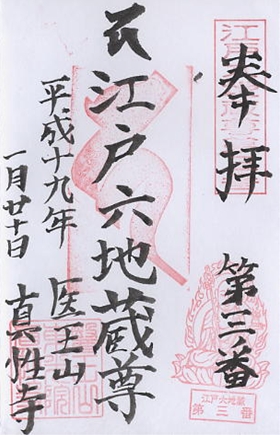 奉拝
第三番
江戸六地蔵尊
平成十九年
一月廿日
医王山
真性寺
江戸六地蔵
第三番